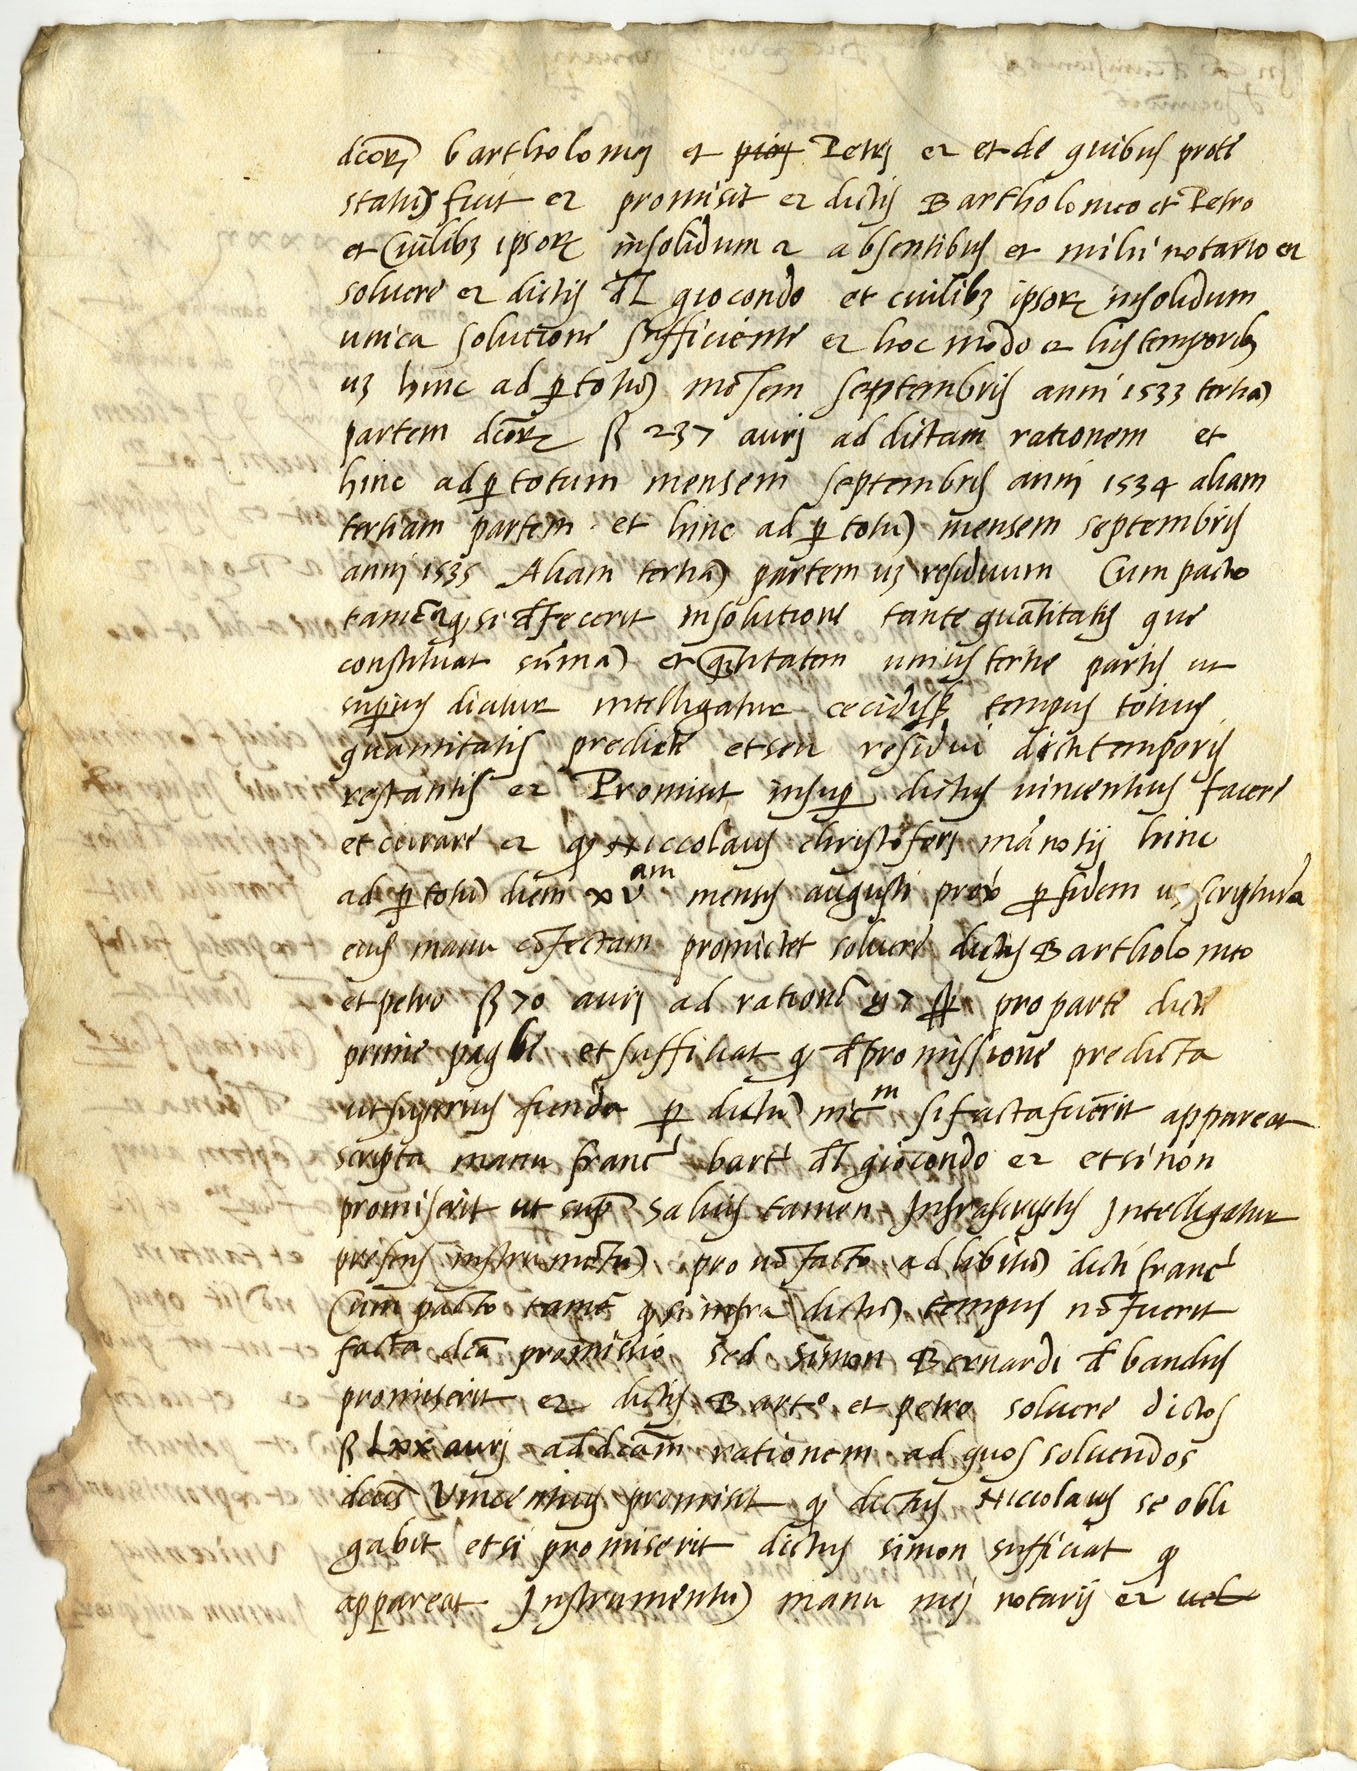 dcorȝ bartholomej et Petrj et et de quibus prote
status fuit et promisit et dictis Bartholomeo et Petro
et Cuilibȝ ipsorȝ insolidum et absentibus et mihi notario et
solvere et dictis dl giocondo et cuilibȝ ipsorȝ insolidum
unica solutione sufficiente et hoc modo et his temporibȝ
uȝ hinc ad ꝑ totū mensem septembris anni 1533 tertiā
partem dcorȝ β 237 aurj ad dictam rationem et
hinc ad ꝑ totum mensem septembris annj 1534 aliam
tertiam partem et hinc ad ꝑ totū mensem septembris
annj 1535 Aliam tertiā partem uȝ residuum Cum pacto
tamē et ꝙ si defecerit insolutione tante quātitatis que
constituat sūmā et quātitatem unius tertie partis ut
supius dicitur intelligatur cecidisse tempus totius
quantitatis predicte et seu residui dicti temporis
restantis et Promisit insuꝑ dictus vincentius facere
et curare et ꝙ Niccolaus christoferj mānotij hinc
ad ꝑ totū diem xv am mensis augusti prox ꝑ fidem uȝ scripturā
eius manu cōfectam promictet solvere dictis Bartholomeo
et petro β 70 aurj ad rationē pro parte dicte
prime page et sufficiat ꝙ de promissione predicta
ut supius fienda ꝑ dictū nicm si facta fuerit appareat
scripta manu franc bart dl giocondo et et si non
promiserit ut supͣ salvis tamen Infrascriptis Intelligatur
presens instrumētū pro nō facto ad libitū dicti franc
Cum pacto tamē ꝙ si infra dictū tempus nō fuerit
facta dcā promissio sed simon Bernardi de bandis
promiserit et dictis Barto et petro solvere dictos
β Lxx aurj ad dcām rationem ad quos solvendos
dcus Vincentius promisit ꝙ dictus Niccolaus se obli
gabit et si promiserit dictus simon sufficiat ꝙ
appareat Instrumentū manu mej notarij et vel